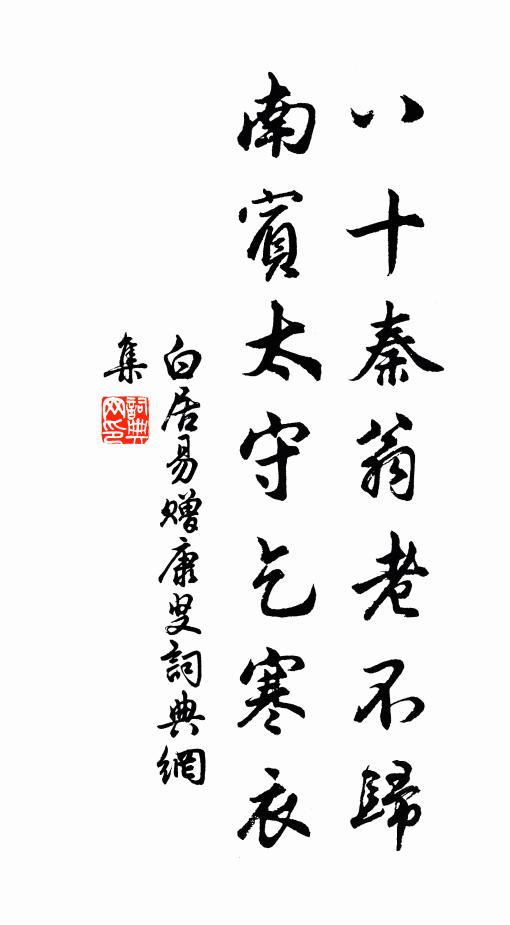 八十秦翁老不歸
南賓太守乞寒衣
白居易贈康叟詞典網
集
詞典
网印